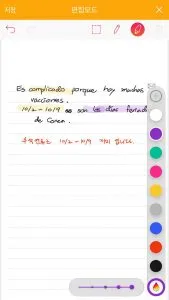 저장 편집모드
Es complicado porque hay muchas
vacaciones.
10/2 - 10/9 son los días feriado
de Corea.
추석연휴는 10/2 - 10/9 까지 입니다.